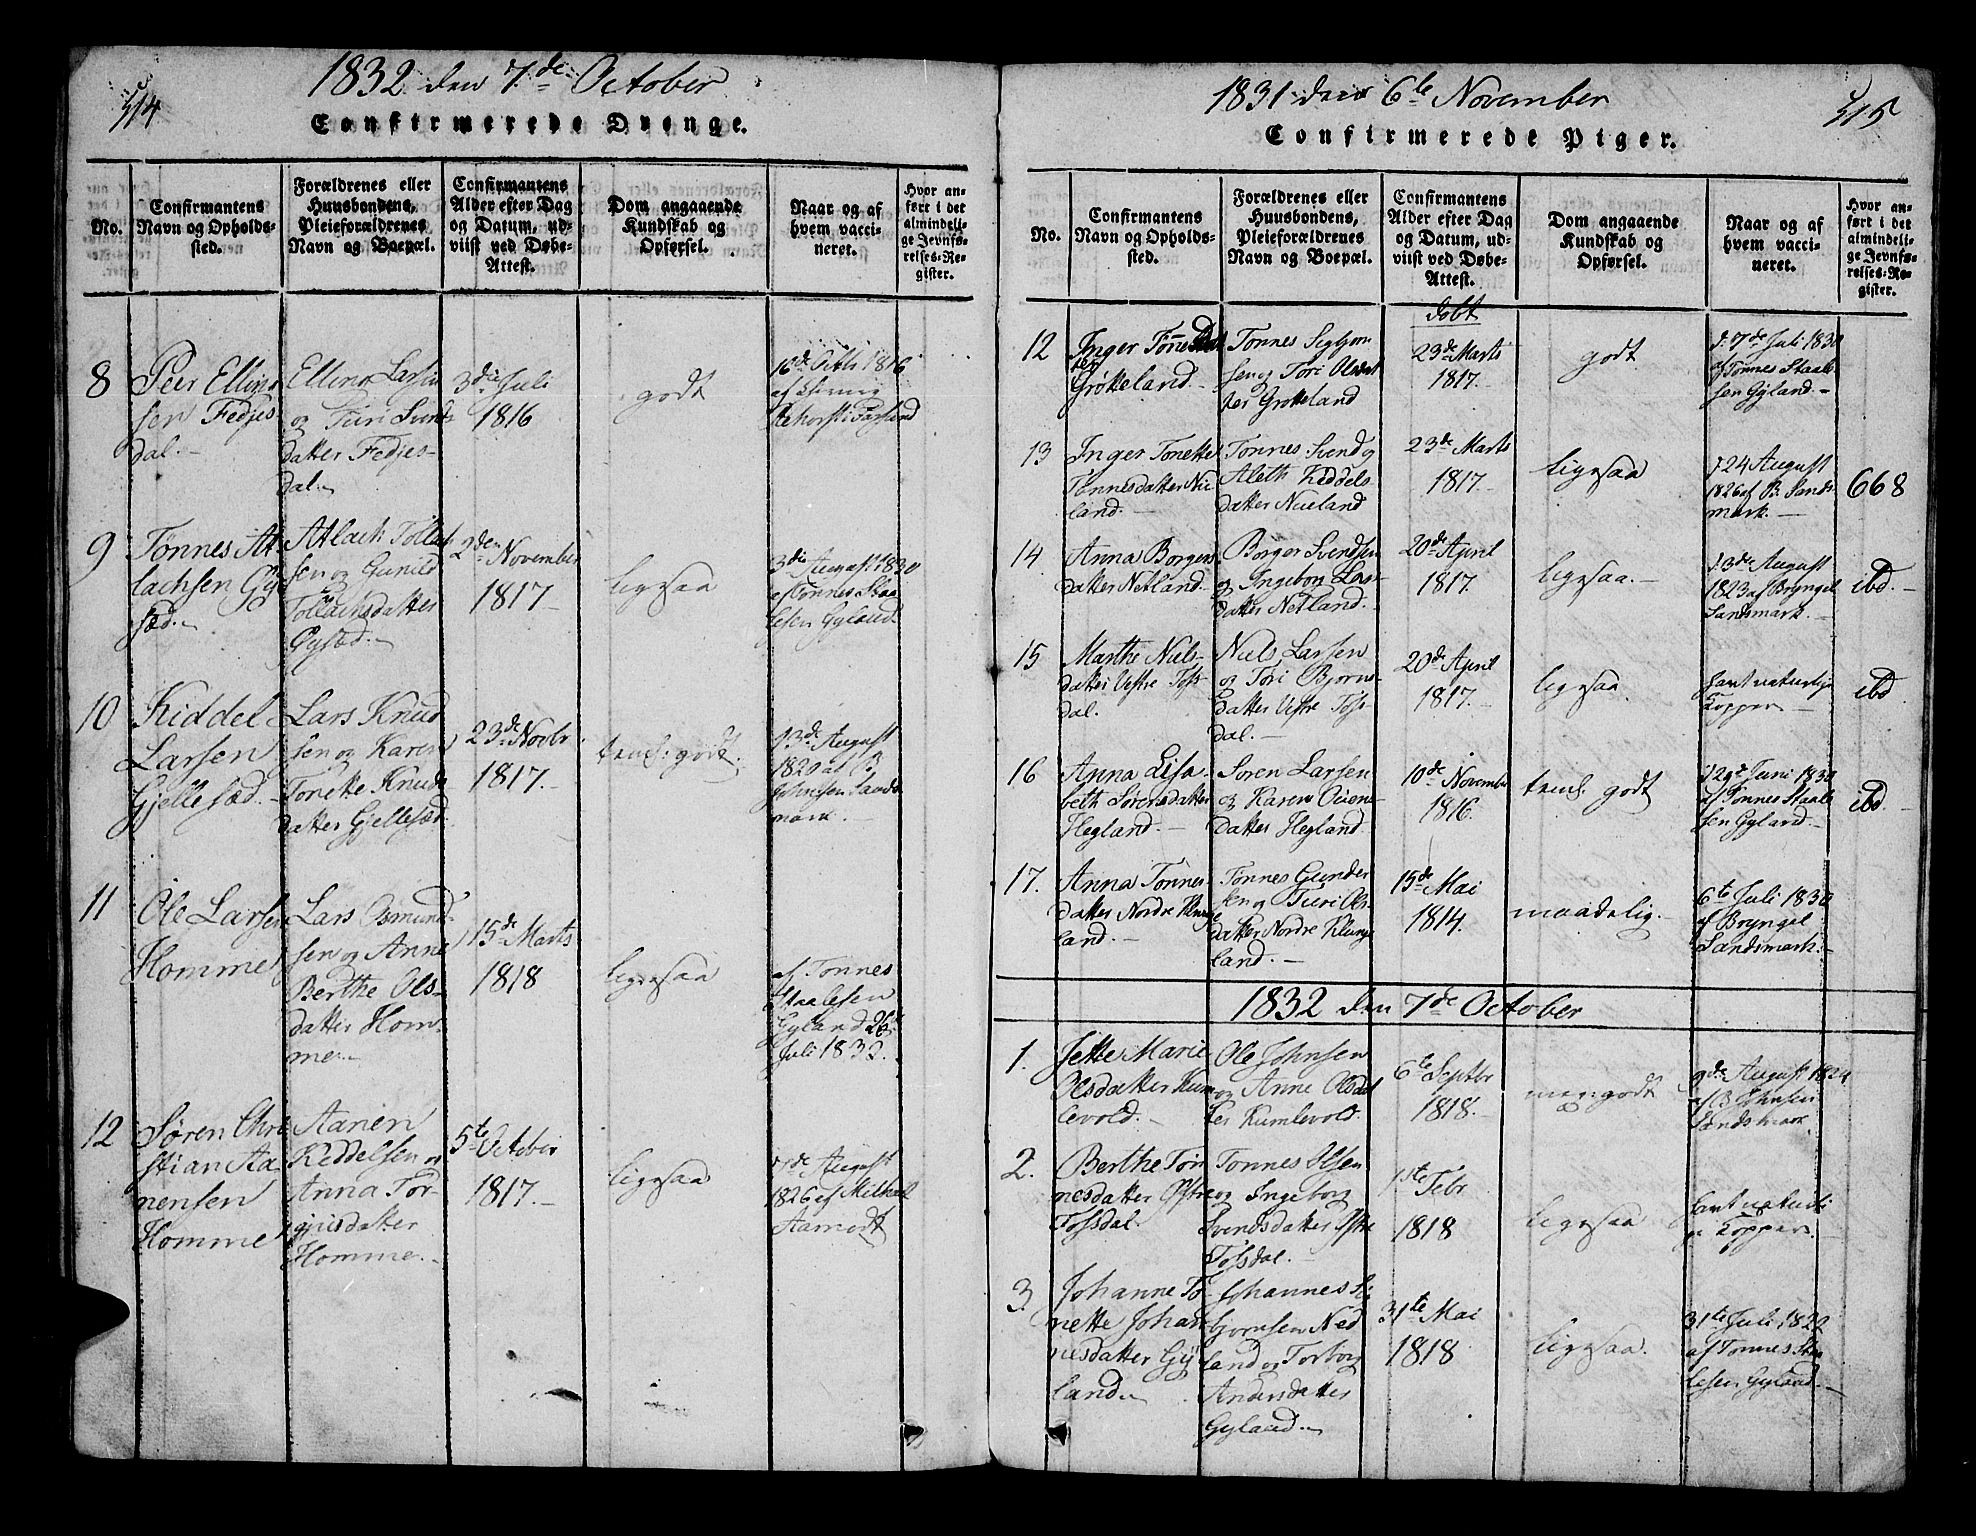 514
1832 den 7de October
Confirmerede Drenge.
No.
Confirmantens
Navn og Opholds-
sted.
Forældrenes eller
Huusbondens,
Pleieforældrenes
Navn og Boepæl.
Confirmantens
Alder efter Dag
og Datum, ud-
viist ved Døbe-
Attest.
Dom angaaende
Kundskab og
Opførsel.
Naar og af
hvem vacci-
neret.
Hvor an-
ført i det
almindeli-
ge Jevnfø-
relses-Re-
gister.
8
Peer Elling
sen Fedjes
dal.-
Elling Larsen
og Turi Svends
datter Fedjes-
dal.
3die Juli
1816
godt
1816
af
9
Tønnes At-
lachsen Gy
sæd.
Atlach Tollach
sen og Gunild
Tollachsdatter
Gysæd.
2den November
1817
ligesaa
3die August 1830
af Tønnes Staa
lesen Gyland
10
Kiddel
Larsen
Gjellesæd.-
Lars Knud
sen og Karen
Tonette Knuds
datter Gjellesæd
23de Novbr
1817.
teml: godt.
13de August
1820 af B
Johnsen Sands
mark.
11
Ole Larsen
Homme
Lars Osmund
sen og Anne
Berthe Ols-
datter Hom-
me.
15de Marts
1818
ligesaa
af Tønnes
Staalesen
Gyland 26
Juli 1832.
12
Søren Chri
stian Aa-
nensen
Homme
Aanen
Keddelsen og
Anna Tor-
gjusdatter
Homme.
5te October
1817.-
ligesaa
August
1826 af
Aamodt
1831 den 6te November
515
Confirmerede Piger.
No.
Confirmantens
Navn og Opholds-
sted.
Forældrenes eller
Huusbondens,
Pleieforældrenes
Navn og Boepæl.
Confirmantens
Alder efter Dag
og Datum, ud-
viist ved Døbe-
Attest.
Dom angaaende
Kundskab og
Opførsel.
Naar og af
hvem vacci-
neret.
Hvor an-
ført i det
almindeli-
ge Jevnfø-
relses-Re-
gister.
døbt
12
Inger Tønnesdat
ter
Grøkeland.-
Tønnes Sigbjørn
sen og Tori Olsdat
ter Grøkeland
23de Marts
1817.
godt
d. 7de Juli 1830
af Tønnes Staale
sen Gyland-
13
Inger Tonette
Tønnesdatter Nu
land.
Tønnes Svend og
Aleth Keddels
datter Nuland
23de Marts
1817.
ligesaa
d 24 August
1826 af B. Sands
mark.-
668
14
Anna Borgers
datter Netland.-
Borger Svendsen
og Ingeborg Lars
datter Netland.
20de April
1817.
ligesaa.-
13de August
1823 af Bryngel
Sandsmark.
ibd.-
15
Marthe Niels-
datter Vestre Tos
dal.
Niels Larsen
og Tori Bjørns
datter Vestre Tos
dal.-
20de April
1817.-
ligesaa.
havt naturlige
Kopper-
ibd
16
Anna Lisa-
beth Sørensdatter
Hegland.-
Søren Larsen
og Karen Osiens
datter Hegland.
10de November
1816.
teml. godt
d 29de Juni 1830
af Tønnes Staale
sen Gyland.-
ibd
17.
Anna Tønnes-
datter Nordre Klunge
land.-
Tønnes Gunder
sen og Turi Ols
datter Nordre Klunge
land.-
15de Mai
1814.
maadelig.-
6te Juli 1830
af Bryngel
Sandsmark.-
1832 den 7de October
1.
Jette Marie
Olsdatter Kum
levold.-
Ole Johnsen
og Anne Olsdat
ter Kumlevold.
6te Septbr
1818.-
meget godt
9de August 1824
af B Johnsen
Sandsmark
2.
Berthe Tøn
nesdatter Østre
Tosdal.
Tønnes Olsen
og Ingeborg
Svendsdatter Østre
Tosdal.-
1ste Febr
1818
ligesaa
havt naturli
ge Kopper.-
3
Johanne To-
nette Johan
nesdatter Gy
land.
Johannes Si
bjørnsen Ned
land og Torborg
Andersdatter
Gyland.
31te Mai
1818
ligesaa.
31te Juli 1822
af Tønnes Staa
lesen Gyland.-